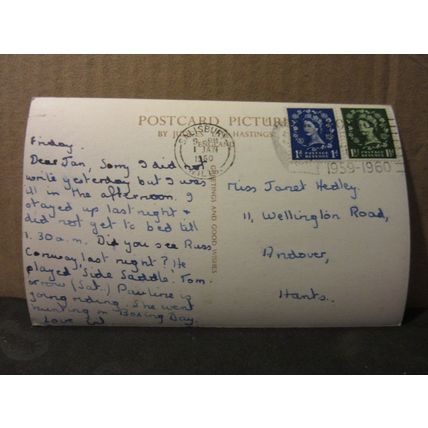 POSTCARD PICTURE
BY J HASTINGS
ENGLAND
SALISBURY
1 JAN
1960
WILTS
1959-1960
POSTAGE REVENUE
1D 1D
GREETINGS AND GOOD WISHES
Friday
Dear Jan, Sorry I did not
write yesterday but I was
ill in the afternoon. I
stayed up last night &
did not get to bed till
1.30 a.m. Did you see Russ
Conway last night? He
played 'Side Saddle'. Tom-
orrow (Sat.) Pauline is
going riding. She went
hunting on Boxing Day.
Love
Miss Janet Hedley.
11, Wellington Road,
Andover,
Hants.